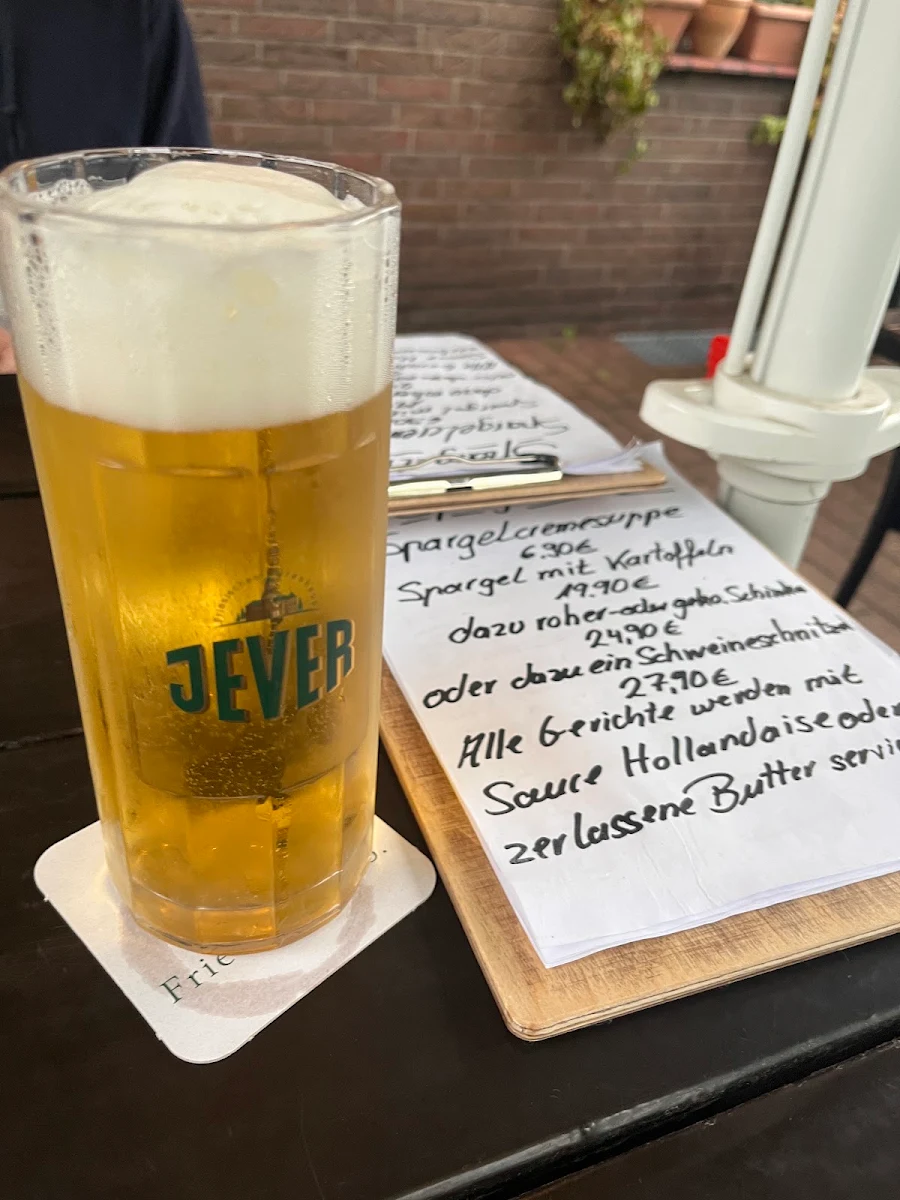 JEVER
Frie
Spargelcremesuppe
6.90€
Spargel mit Kartoffeln
19.90€
dazu roher-oder geko. Schinken
24,90€
oder dazu ein Schweineschnitzel
27,90€
Alle Gerichte werden mit
Sauce Hollandaise oder
zerlassene Butter servie